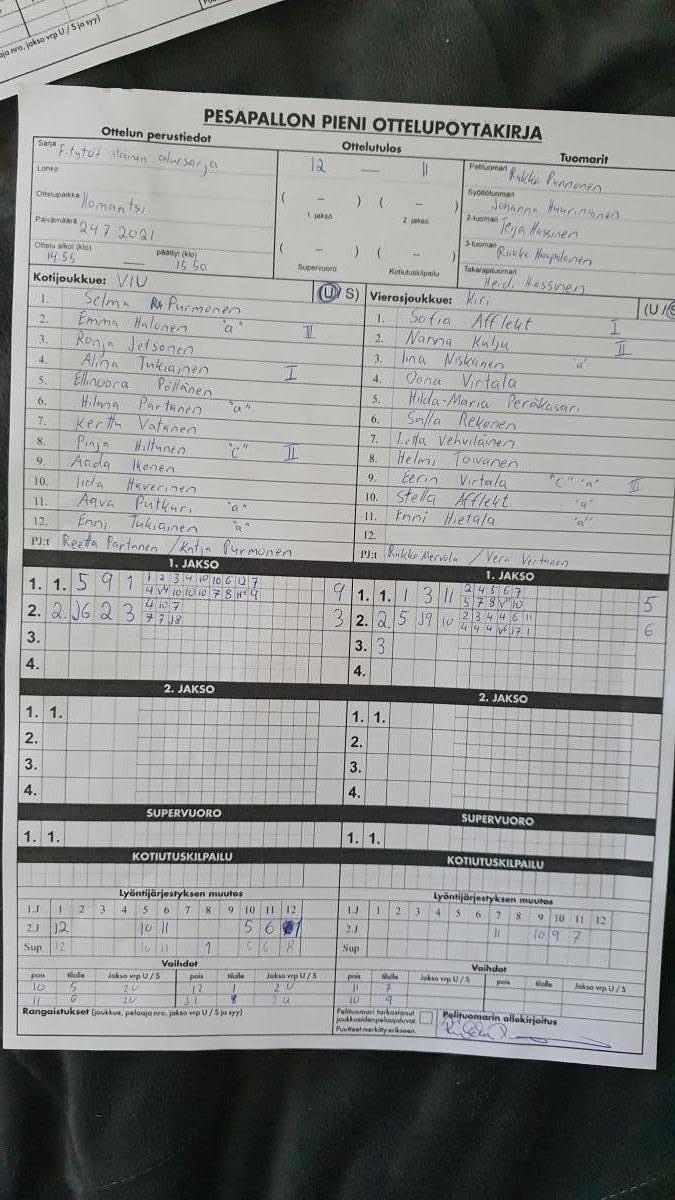 PESÄPALLON PIENI OTTELUPÖYTÄKIRJA
Ottelun perustiedot
Sarja F-tytöt itäinen aluesarja
Lohko
Ottelupaikka Ilomantsi
Päivämäärä 24.7.2021
Ottelu alkoi (klo) 14.55 — päättyi (klo) 15.50
Ottelutulos
12 — 11
( – ) ( – )
1. jakso 2. jakso
( – ) ( – )
Supervuoro Kotiutuskilpailu
Tuomarit
Pelituomari Riikka Punnonen
Syöttötuomari Johanna
2-tuomari Teija Hassinen
3-tuomari Riikka
Takarajatuomari Heidi Hassinen
Kotijoukkue: VIU (U/ S)
1. Selma Purmonen
2. Emma Halonen "a" II
3. Ronja Jetsonen
4. Alina Tukiainen I
5. Ellinoora Pöllänen
6. Hilma Partanen "a"
7. Kerttu Vatanen
8. Pinja Hiltunen "C" II
9. Aada Ikonen
10. Iida Haverinen
11. Aava Putkuri "a"
12. Enni Tukiainen "a"
PJ:t Reetta Partanen / Katja Purmonen
Vierasjoukkue: Kiri (U/S
1. Sofia Afflekt I
2. Nanna Kulju II
3. Iina Niskanen "a"
4. Oona Virtala
5. Hilda-Maria Peräkasari
6. Salla Rekonen
7. Lotta Vehviläinen
8. Helmi Toivanen
9. Eerin Virtala "C" "a" III
10. Stella Afflekt "a"
11. Enni Hietala "a"
12.
PJ:t Riikka Mervola / Vera Vertanen
1. JAKSO
1. 1. 5 9 1 1 2 3 4 10 10 6 12 7 9
2. 2. J6 2 3 4 10 7 3
7 7 J8
3.
4.
1. JAKSO
1. 1. 1 3 11 2 4 5 6 7 5
2. 2 5 J9 10 2 3 4 4 6 11 6
3. 3
4.
2. JAKSO
1. 1.
2.
3.
4.
2. JAKSO
1. 1.
2.
3.
4.
SUPERVUORO
1. 1.
SUPERVUORO
1. 1.
KOTIUTUSKILPAILU
KOTIUTUSKILPAILU
Lyöntijärjestyksen muutos
1.J 1 2 3 4 5 6 7 8 9 10 11 12
2.J 12 10 11 5 6 1
Sup 12 10 11 9 5 6 8
Lyöntijärjestyksen muutos
1.J 1 2 3 4 5 6 7 8 9 10 11 12
2.J 11 10 9 7
Sup
Vaihdot
pois tilalle Jakso vrp U / S pois tilalle Jakso vrp U / S
10 5 2U 12 1 2U
11 6 2U 8 2U
Vaihdot
pois tilalle Jakso vrp U / S pois tilalle Jakso vrp U / S
11 7
10 9
Rangaistukset (joukkue, pelaaja nro, jakso vrp U / S ja syy)
Pelituomari tarkastanut
joukkueiden pelaajaluvat.
Puutteet merkitty erikseen.
Pelituomarin allekirjoitus